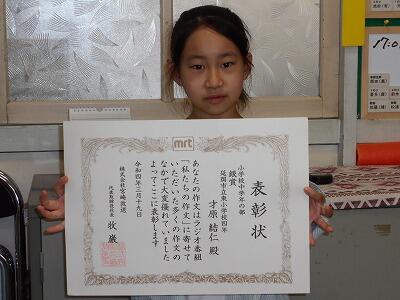 mrt
表彰状
小学校中学年の部
銀賞
延岡市立東小学校四年
才原 結仁 殿
あなたの作文はラジオ番組
「私たちの作文」に寄せて
いただいた多くの作文の
なかで大変優れていました
よってここに表彰します
令和四年三月十九日
株式会社宮崎放送
代表取締役社長 牧 巌
17:0